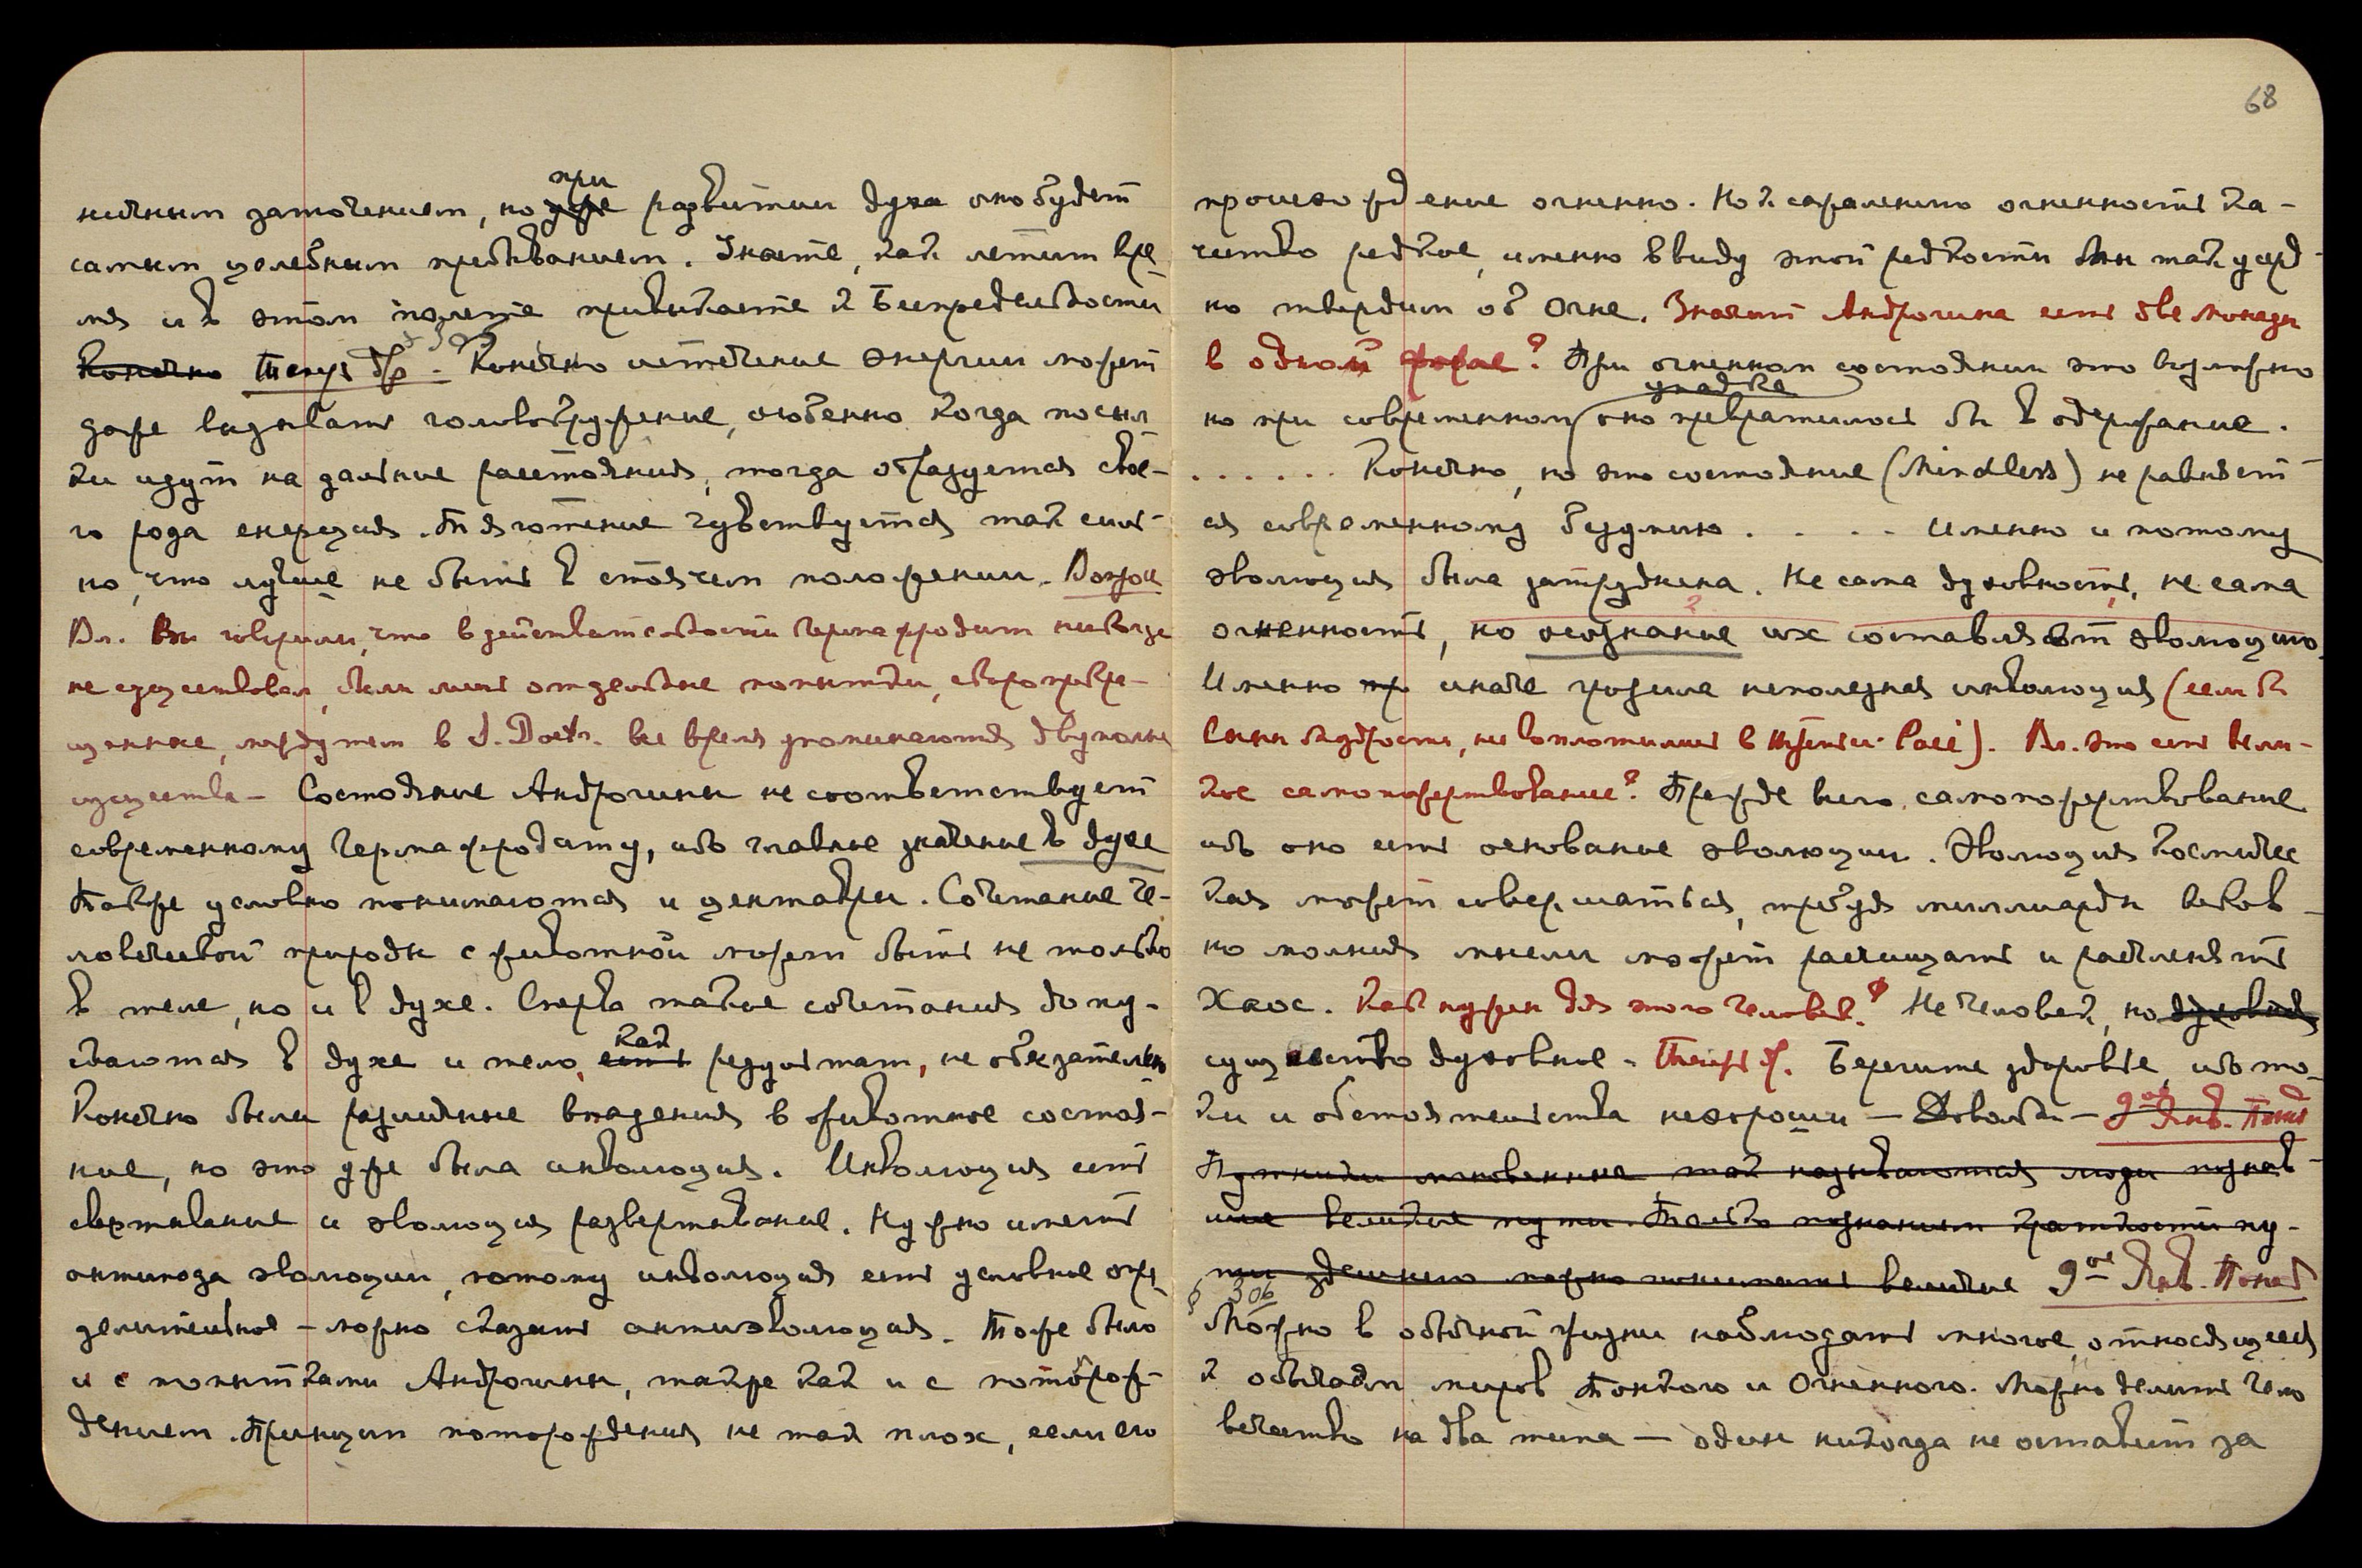 68
ничным заточением, но при уже развитии духа оно будет
самым целебным пребыванием. Знаете, как летит вре-
мя и в этом полете привыкаете к Беспредельности
Конечно Теперь др. Конечно истечение энергии может
даже вызывать головокружение, особенно когда посыл-
ки идут на дальние расстояния, тогда образуется свое-
го рода инерция. Тяготение чувствуется так силь-
но, что лучше не быть в стоячем положении. Вопрос
Вл. Вы говорили, что в действительности гермафродит никогда
не существовал, были лишь отдельные попытки, скоро прекра-
щенные, между тем в S. Doctr. все время упоминаются двуполые
существа — Состояние Андрогины не соответствует
современному гермафродиту, ибо главное значение в духе
Также условно понимаются и центавры. Сочетание че-
ловеческой природы с животной может быть не только
в теле, но и в духе. Сперва такие сочетания допу-
скаются в духе и тело, есть как результат, не обязательно
Конечно были различные впадения в животное состоя-
ние, но это уже была инволюция. Инволюция есть
свертывание и эволюция развертывание. Нужно иметь
антипода эволюции, потому инволюция есть условное опре-
делительное — можно сказать антиэволюция. Тоже было
и с попытками Андрогины, также как и с поторож-
дением. Принцип поторождения не так плох, если его
происхождение огненно. Но к сожалению огненность ка-
чество редкое, именно ввиду этой редкости Мы так усерд-
но твердим об Огне. Значит Андрогина есть две монады
в одной форме? При огненном состоянии это возможно
но при современном упадке оно превратилось бы в одержание.
. . . . . . Конечно, но это состояние (Mindless) не равняет-
ся современному безумию . . . . Именно и потому
эволюция была затруднена. Не сама духовность, не сама
огненность, но осознание их составляет эволюцию.
Именно пр иначе грозила неполезная инволюция (если б
Сыны Мудрости, не воплотились в Расе). Вл. это есть вели-
кое самопожертвование? Прежде всего, самопожертвование
ибо оно есть основание эволюции. Эволюция космичес
кая может совершаться, требуя миллиарды веков
но молния мысли может расчищать и расчленять
Хаос. Как нужен для этого человек? Не человек, но духовная
существо духовное. Теперь д. Берегите здоровье, ибо то-
ки и обстоятельства нехороши — Довольно — 9ое Янв. Понд
Путники мгновенные так называются люди познав-
шие великие пути. Только познанием краткости пу-
ти здешнего можно понимать великие 9ое Янв. Понед
§ 306
Можно в обычной жизни наблюдать многое, относящееся
к обычаям миров Тонкого и Огненного. Можно делить чело
вечество на два типа — один никогда не оставит за